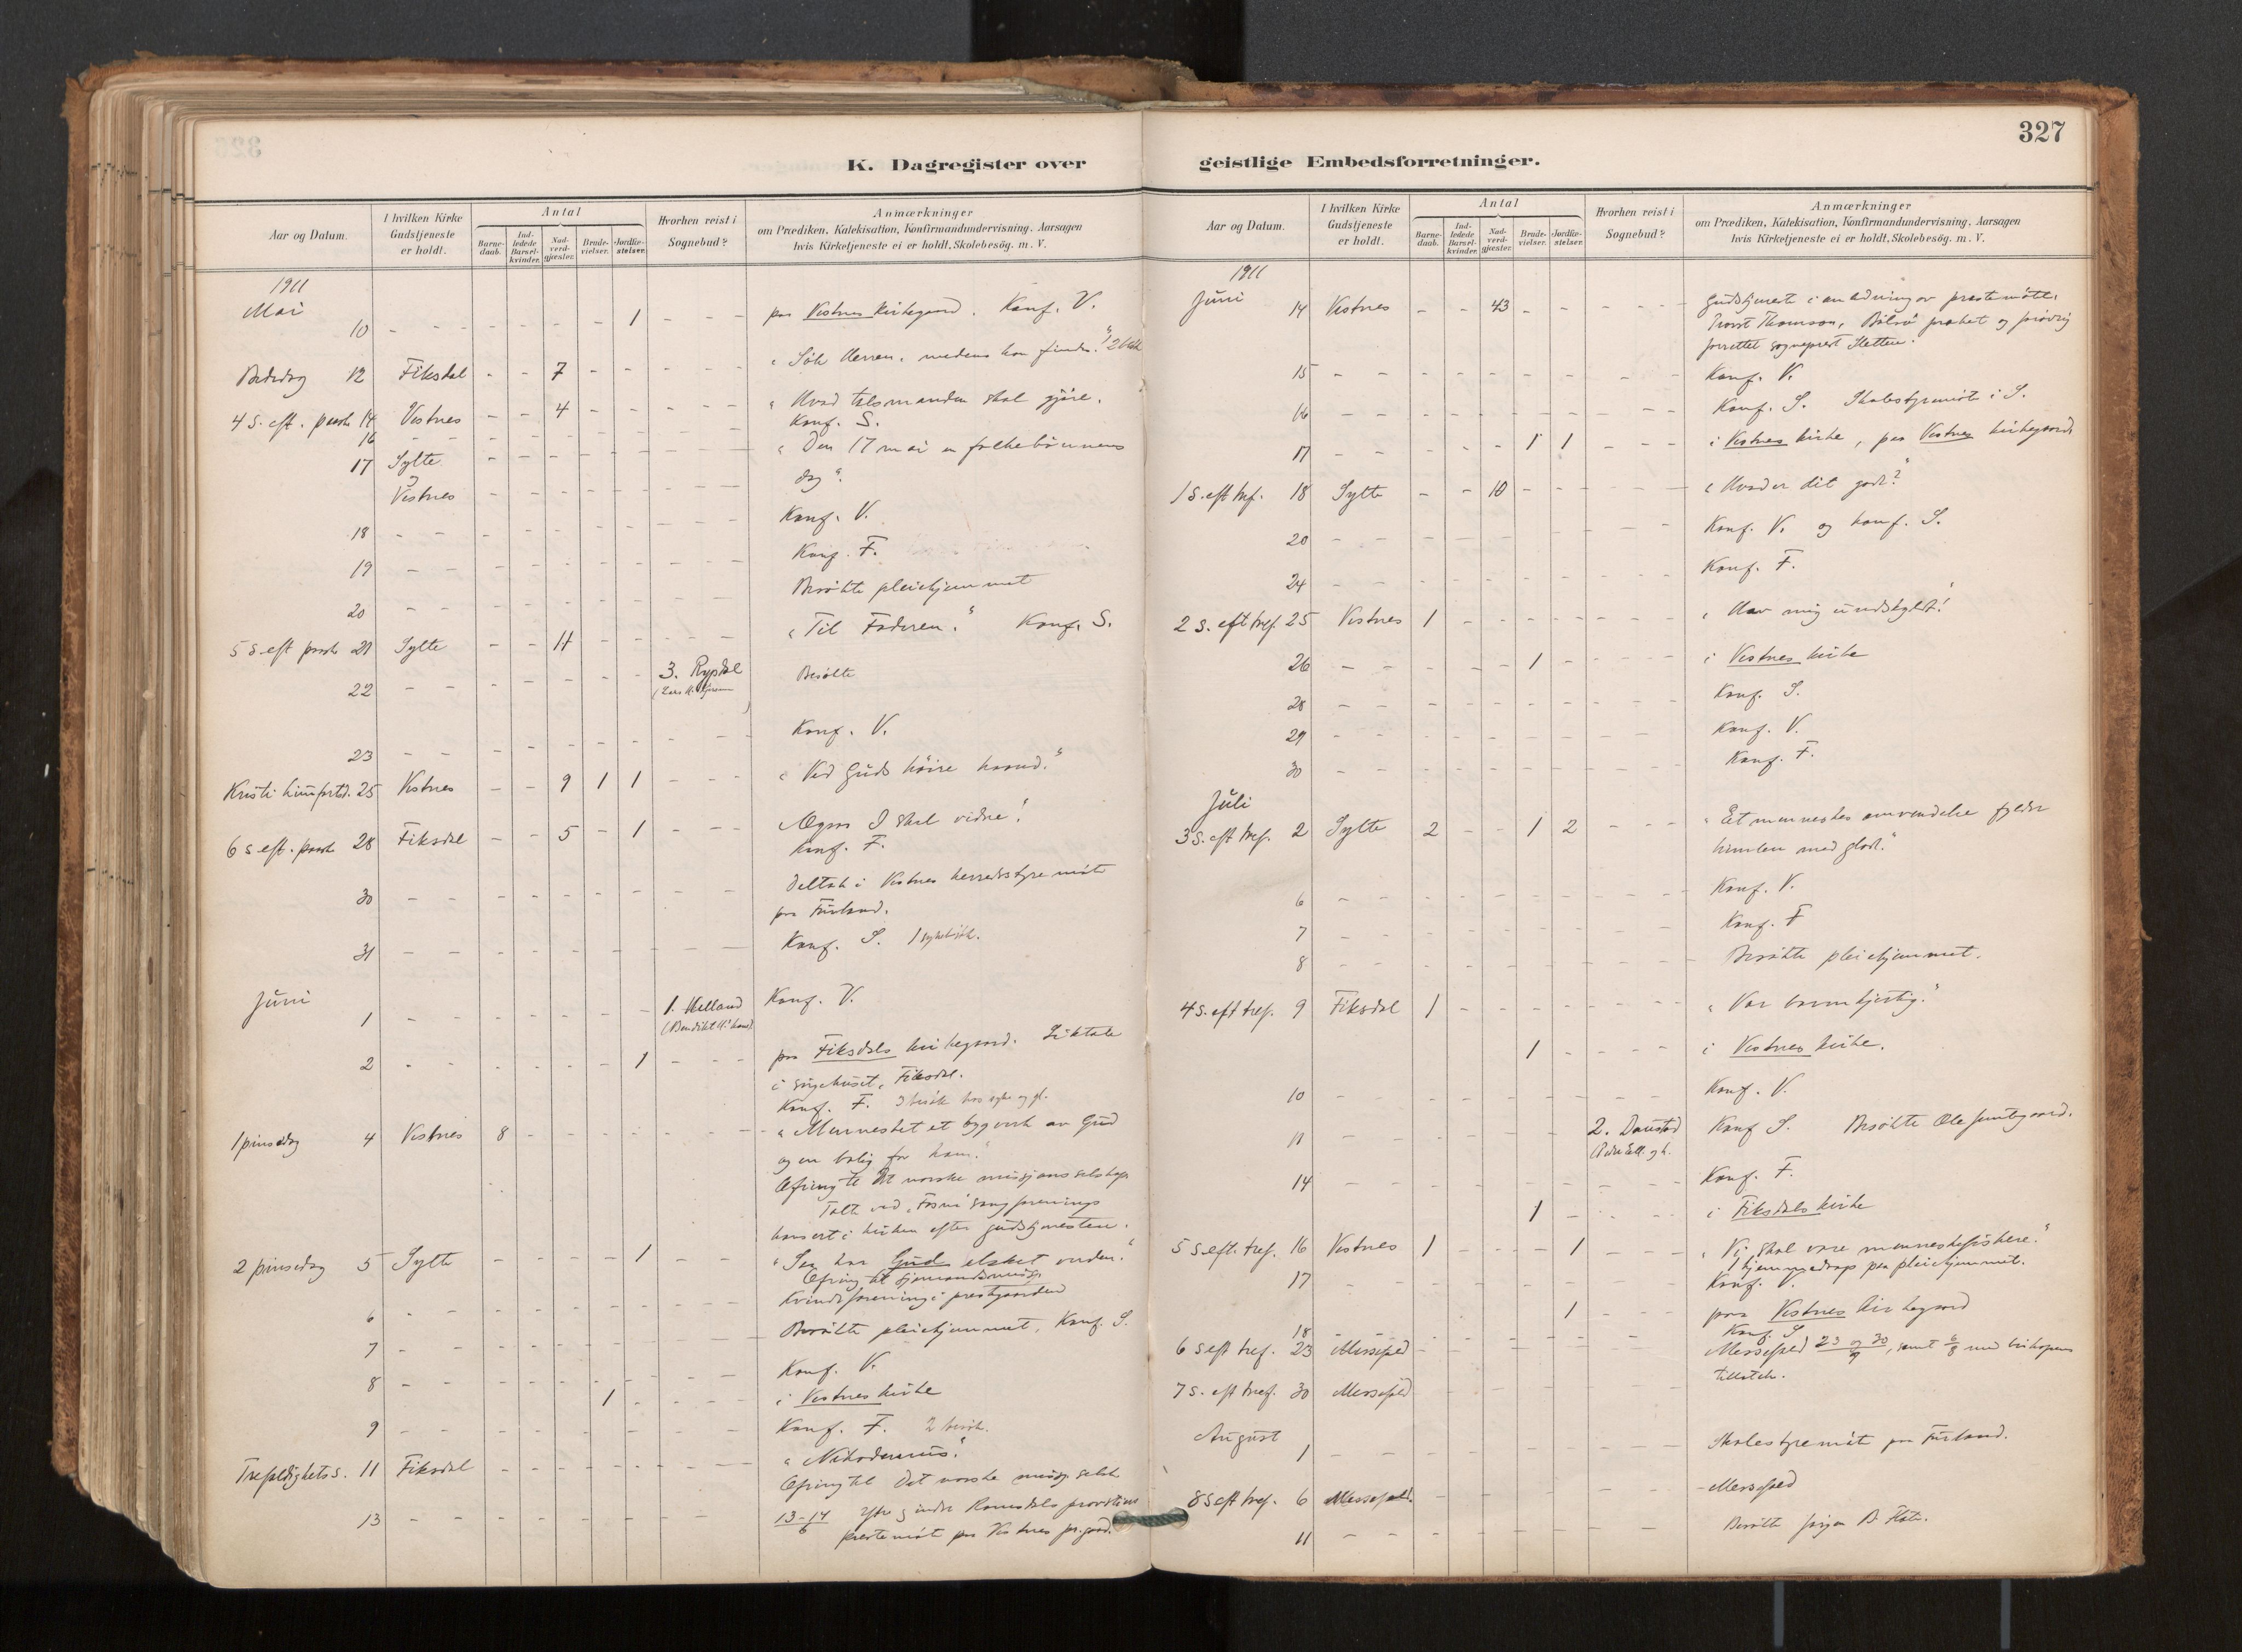 327
K. Dagregister over
geistlige Embedsforretninger.
Aar og Datum.
I hvilken Kirke
Gudstjeneste
er holdt.
Antal
Barne-
daab.
Ind-
ledede
Barsel-
kvinder.
Nad-
verd-
gjæster.
Brude-
vielser.
Jordfæ-
stelser.
Hvorhen reist i
Sognebud?
Anmærkninger
om Prædiken, Katekisation, Konfirmandundervisning, Aarsagen
hvis Kirketjeneste ei er holdt, Skolebesög. m. V.
1911
Mai
10 - - - - - - 1 - - - paa Vestnes kirkegaard. Konf. V.
Bededag 12 Fiksdal - - 7 - - - „Søk Herren, medens han findes."
4 s. eft. paaske 14 Vestnes - - 4 - - - „Hvad talsmanden skal gjøre.
16 - - Konf. S.
17 Sylte - - - „Den 17 mai en folkebønnens
og
Vestnes - - - dag".
18 - - - Konf. V.
19 - - - Konf. F.
20 - - - Besøkte pleiehjemmet
5 s. eft paaske 21 Sylte - - 11 - - - „Til Faderen." Konf. S.
22 - - - 3. Rypdal Besøkte
23 - - - Konf. V.
Kristi himfartsd. 25 Vestnes - - 9 1 1 - - - „Ved Guds høire haand."
6 s eft. paaske 28 Fiksdal - - 5 - 1 - - - Ogsaa I skal vidne!
Konf. F.
30 - - - Deltok i Vestnes herredsstyremøte
paa Furland.
31 - - - Konf. S. 1 sykebesøk.
Juni
1 - - - 1. Helland Konf. V.
2 - - - 1 - - - paa Fiksdals kirkegaard. Liktale
i sørgehuset, Fiksdal.
Konf. F. 3 besøk hos syke og gl.
1 pinsedag 4 Vestnes 8 - - - „Mennesket et bygverk av Gud
og en bolig for ham."
Ofring til Det norske missjonsselskap
Talte ved sangforenings
konsert i kirken efter gudstjenesten.
2 pinsedag 5 Sylte - - - 1 - - - „Saa har Gud elsket verden."
Ofring til sjømandsmisj.
6 - - - Kvindeforening i prestgaarden
7 - - - Besøkte pleiehjemmet, Konf. S.
8 - - - Konf. V.
1 - - - i Vestnes kirke
9 - - - Konf. F. 2 besøk.
Trefoldighetss. 11 Fiksdal - - - „Nikodemus."
Ofring til Det norske misj. selsk.
13 - - - 13-14/6 Ytre og indre Romsdals provstis
prestemøte paa Vestnes pr.gaard.
Aar og Datum.
I hvilken Kirke
Gudstjeneste
er holdt.
Antal
Barne-
daab.
Ind-
ledede
Barsel-
kvinder.
Nad-
verd-
gjæster.
Brude-
vielser.
Jordfæ-
stelser.
Hvorhen reist i
Sognebud?
Anmærkninger
om Prædiken, Katekisation, Konfirmandundervisning, Aarsagen
hvis Kirketjeneste ei er holdt, Skolebesög. m. V.
1911
Juni
14 Vestnes - - 43 - - - Gudstjeneste i anledning av prestemøtet.
Provst Thomson, præket og
forrettet sogneprest Sletten.
15 - - - Konf. V.
16 - - - Konf. S. Skolestyremøte i S.
17 - - - 1 1 - - - i Vestnes kirke, paa Vestnes kirkegaard
1 S. eft tref. 18 Sylte - - 10 - - - „Hvad er dit gods?"
20 - - - Konf. V. og konf. S.
24 - - - Konf. F.
2 s. eft tref. 25 Vestnes 1 - - - „Hav mig undskyldt!"
26 - - - 1 - - - i Vestnes kirke
28 - - - Konf. S.
29 - - - Konf. V.
30 - - - Konf. F.
Juli
3 s. eft tref. 2 Sylte 2 - - 1 2 - - - „Et menneskes omvendelse fylder
himlen med glæde."
6 - - - Konf. V.
7 - - - Konf. F
8 - - - Besøkte pleiehjemmet.
4 s. eft tref. 9 Fiksdal 1 - - - „Vær barmhjertig."
1 - - - i Vestnes kirke.
10 - - - Konf. V.
11 - - - 2. Daugstad Konf S. Besøkte Ole
14 - - - Konf. F.
1 - - - i Fiksdals kirke
5 s. eft. tref. 16 Vestnes 1 - - - 1 - - - „Vi skal være menneskefiskere."
1 hjemmedaap paa pleiehjemmet.
17 - - - Konf. V.
1 - - - paa Vestnes kirkegaard
18 Konf. S
6 s eft tref. 23 Messefald - - - Messefald 23 og 30/7, samt 6/8 med biskopens
tillatelse.
7 s. eft tref. 30 Messefald - - -
August
1 - - - Skolestyremøt paa Furland.
8 s eft tref. 6 Messefald - - - Messefald
11 - - - Besøkte Jørgen B.